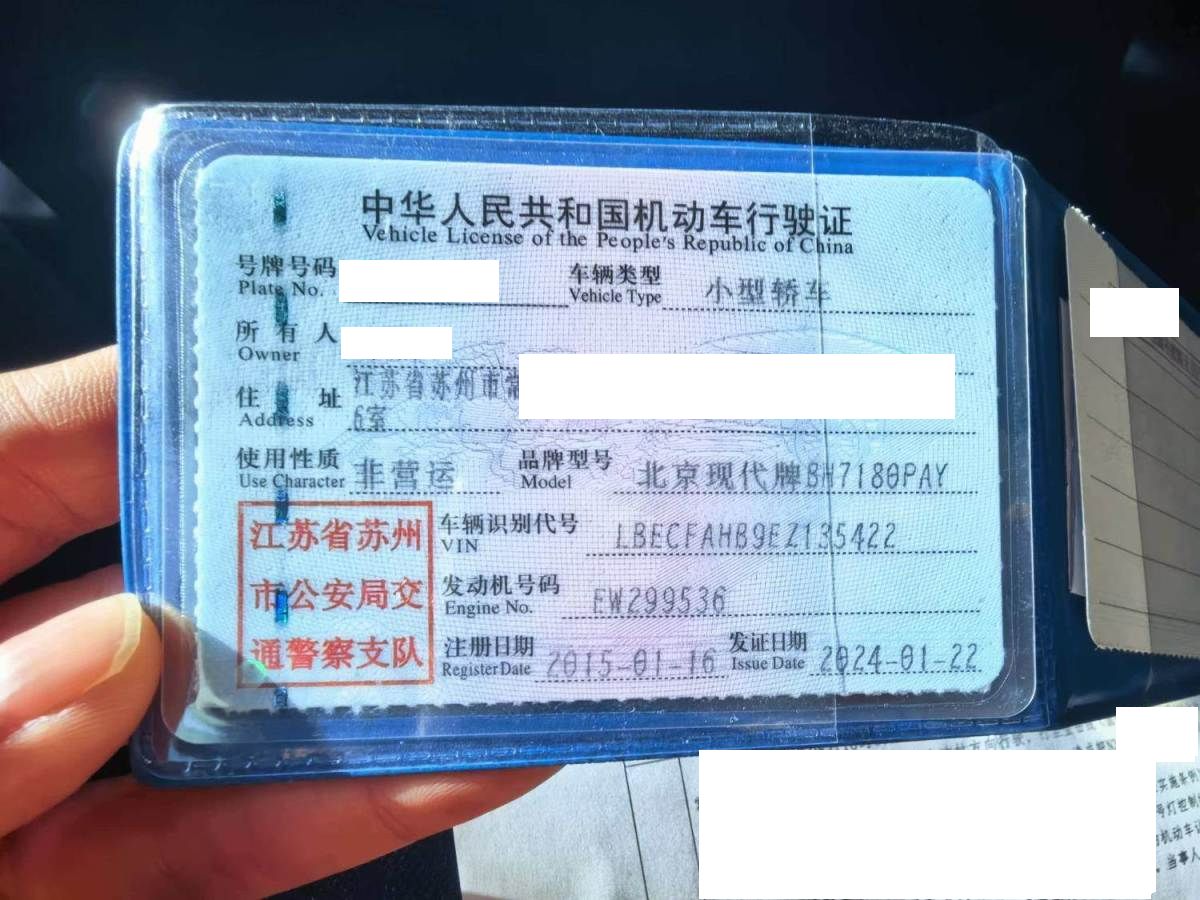 中华人民共和国机动车行驶证
Vehicle License of the People's Republic of China
号牌号码 车辆类型 小型轿车
Plate No. Vehicle Type
所有人
Owner
住址 江苏省苏州市常
Address 6室
使用性质 非营运 品牌型号 北京现代牌BH7180PAY
Use Character Model
江苏省苏州
市公安局交
通警察支队
车辆识别代号 LBECFAHB9EZ135422
VIN
发动机号码 EW299536
Engine No.
注册日期 2015-01-16 发证日期 2024-01-22
Register Date Issue Date
方向行驶
实施条例
号灯控制
机动车
当事人